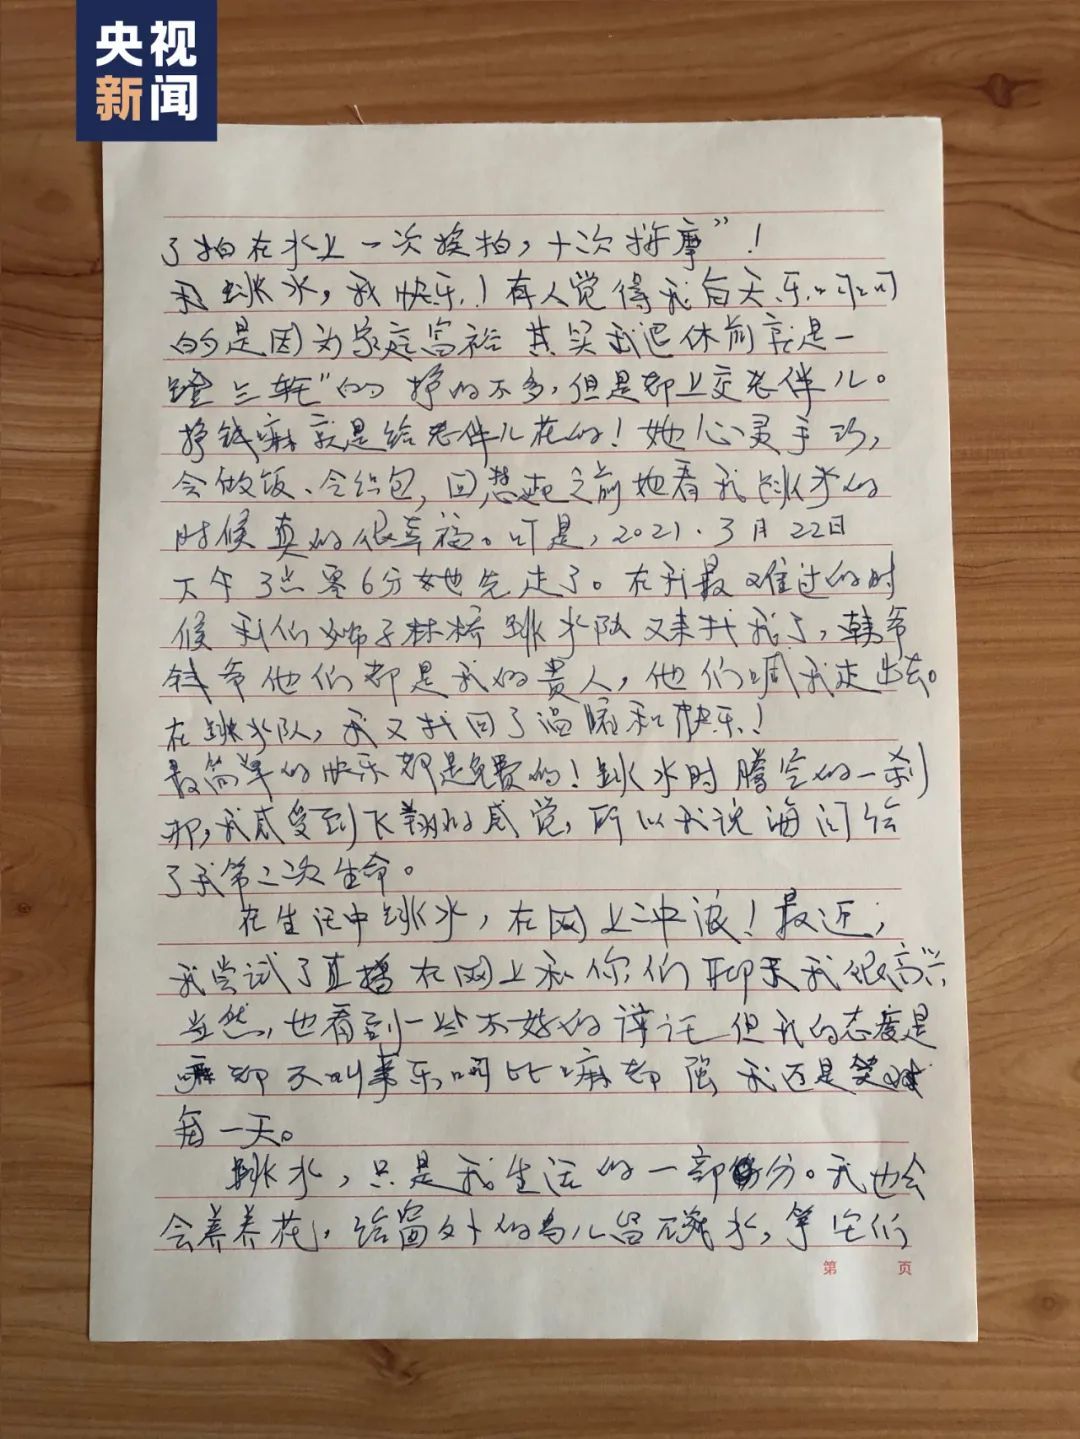 央视
新闻
了拍在水上一次挨拍，十次按摩”！
我跳水，我快乐！有人觉得我每天乐呵呵
的是因为家庭富裕 其实我退休前就是一
蹬三轮”的 挣的不多，但是都上交老伴儿。
挣钱嘛就是给老伴儿花的！她心灵手巧，
会做饭、会织包，回想起之前她看我跳水的
时候真的很幸福。可是，2021.3月22日
下午3点零6分她先走了。在我最难过的时
候 我们狮子林桥跳水队又来找我了，韩爷
钱爷他们都是我的贵人，他们喊我走出去。
在跳水队，我又找回了温暖和快乐！
最简单的快乐都是免费的！跳水时腾空的一刹
那，我感受到飞翔的感觉，所以我说海河给
了我第二次生命。
在生活中跳水，在网上冲浪！最近，
我尝试了直播 在网上和你们聊天我很高兴，
当然，也看到一些不好的评论 但我的态度是
嘛都不叫事乐呵比嘛都强 我还是笑对
每一天。
跳水，只是我生活的一部分。我也会
会养养花，给窗外的鸟儿留碗水，等它们
第 页